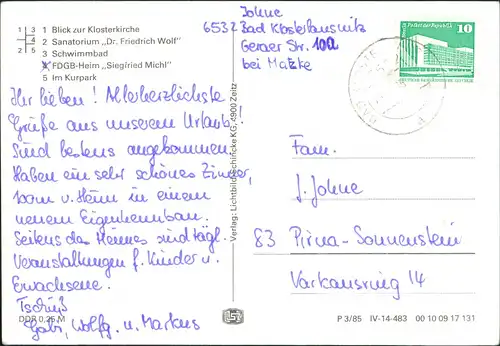 1 Blick zur Klosterkirche
2 Sanatorium „Dr. Friedrich Wolf"
3 Schwimmbad
FDGB-Heim „Siegfried Michl"
5 Im Kurpark
Johne
6532 Bad Klosterlausnitz
Geraer Str. 10a
bei Matzke
10
Ihr lieben! Allerherzlichste
Grüße aus unserem Urlaub!
Sind bestens angekommen.
Haben ein sehr schönes Zimmer,
100m v. Heim in einem
neuem Eigenheimbau.
Seitens des Heimes sind tägl.
Veranstaltungen f. Kinder u.
Erwachsene.
Tschüß
Gabi, Wolfg. u. Markus
DDR 0,25 M
Verlag: Lichtbild
KG, 4900 Zeitz
Fam.
J. Johne
83 Pirna-Sonnenstein
Varkausring 14
P 3/85 IV-14-483 00 10 09 17 131